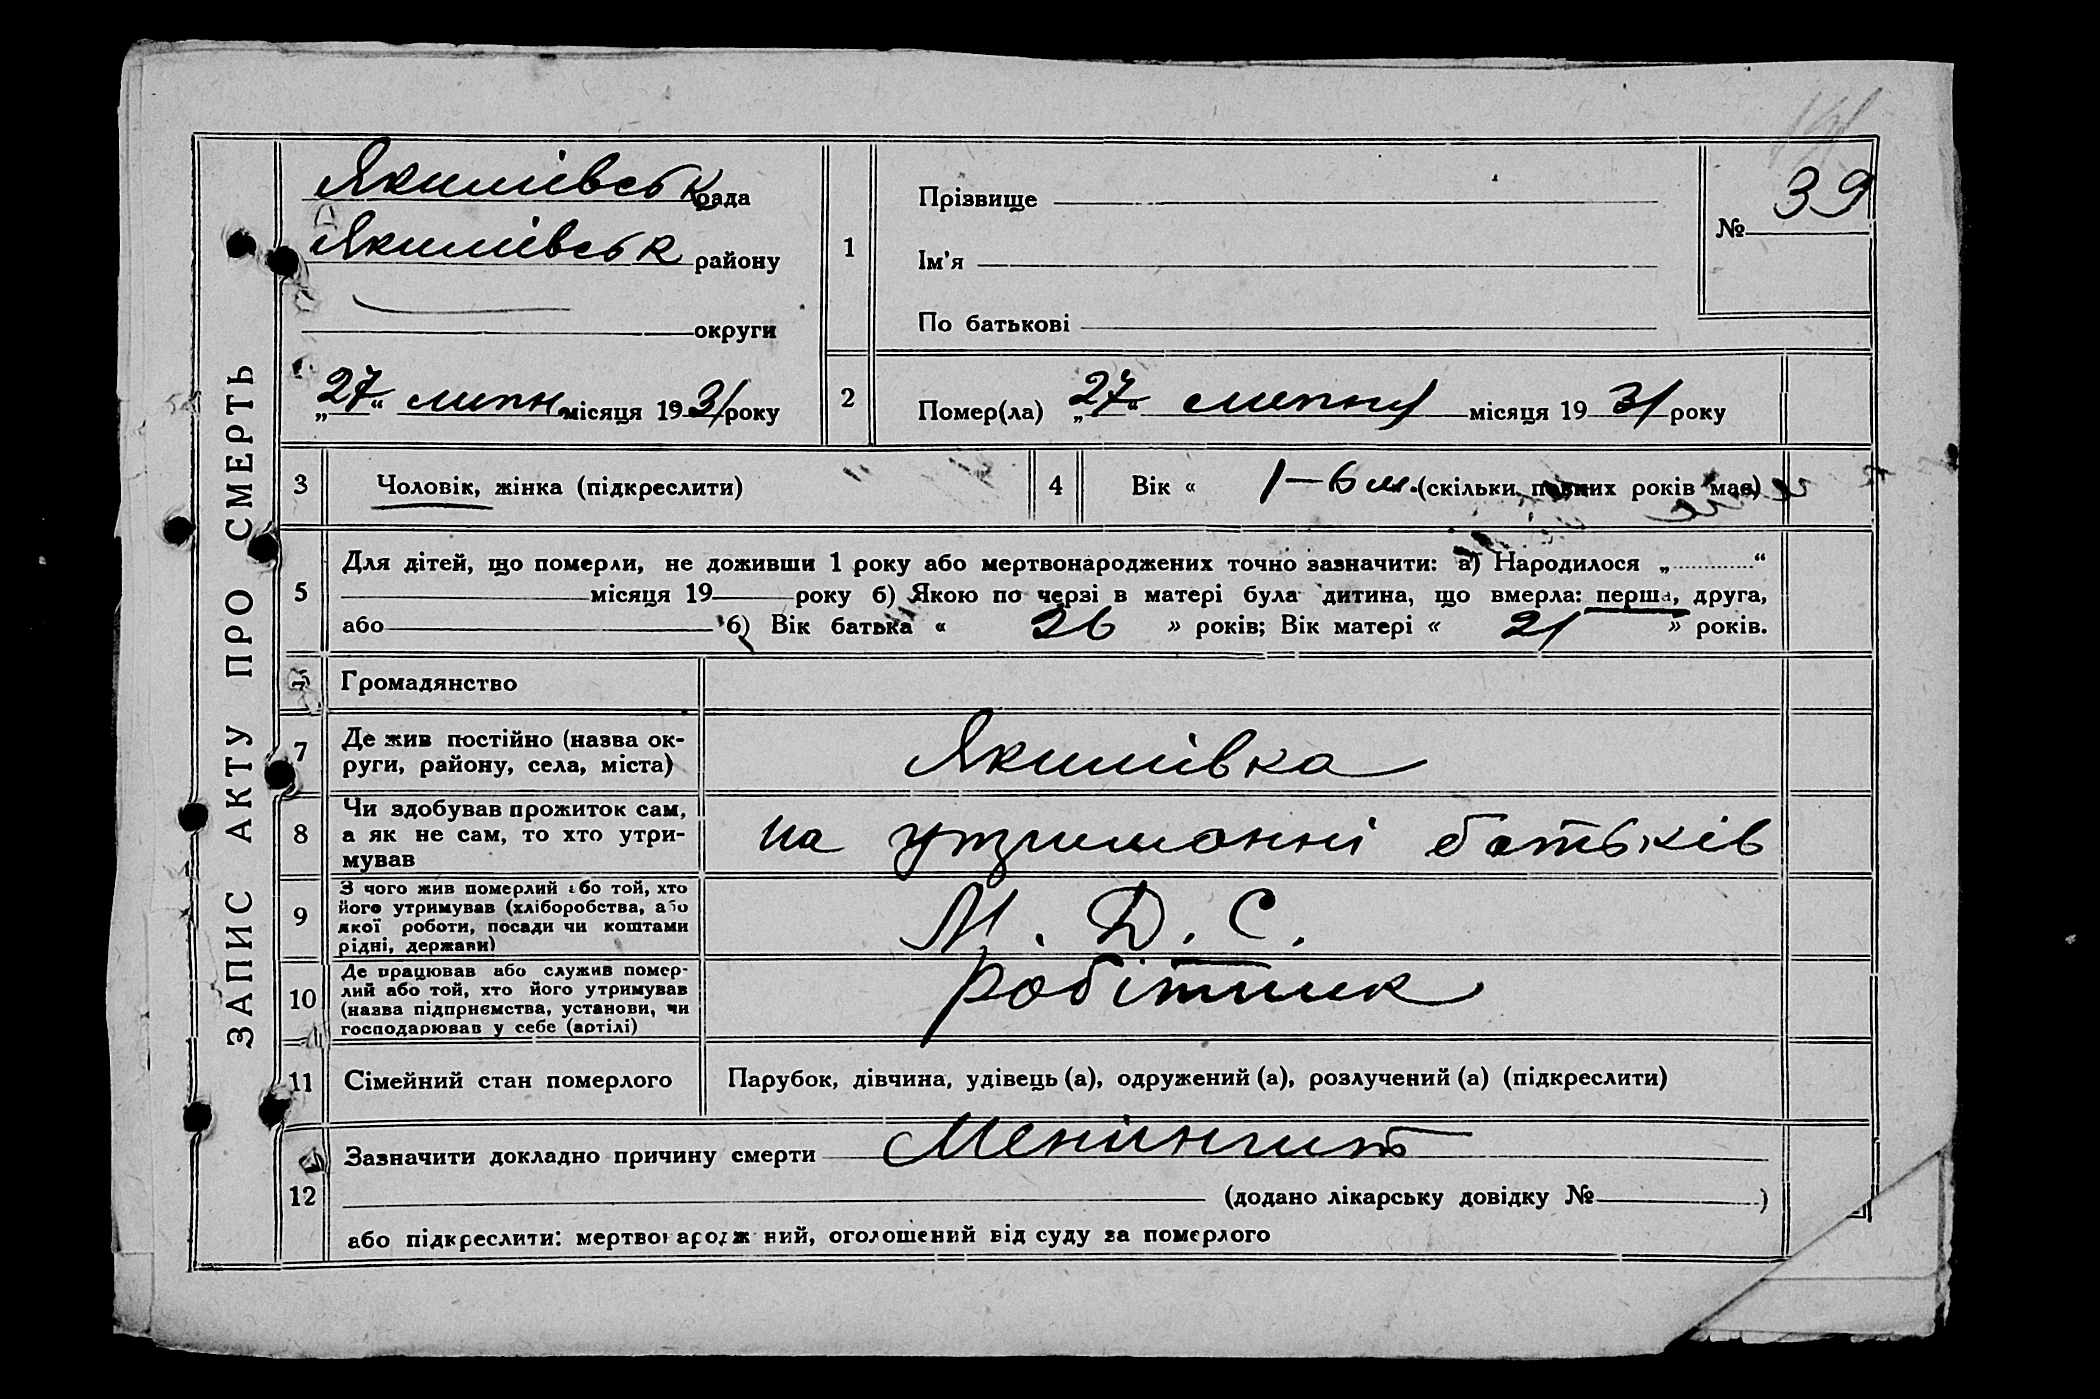 ЗАПИС АКТУ ПРО СМЕРТЬ
Якимівськ рада
Якимівськ району
округи
„27“ липн місяця 1931 року
1
Прізвище
Ім'я
По батькові
№ 39
2
Помер(ла) „27“ липня місяця 1931 року
3
Чоловік, жінка (підкреслити)
4
Вік « 1–6 м. (скільки повних років має)
5
Для дітей, що померли, не доживши 1 року або мертвонароджених точно зазначити: а) Народилося „ “
місяця 19 року б) Якою по черзі в матері була дитина, що вмерла: перша, друга,
або б) Вік батька « 26 » років; Вік матері « 21 » років.
Громадянство
7
Де жив постійно (назва ок-
руги, району, села, міста)
Якимівка
8
Чи здобував прожиток сам,
а як не сам, то хто утри-
мував
на утриманні батьків
9
З чого жив померлий або той, хто
його утримував (хліборобства, або
якої роботи, посади чи коштами
рідні, держави)
М. Д. С.
10
Де працював або служив помер-
лий або той, хто його утримував
(назва підприємства, установи, чи
господарював у себе (артілі)
робітник
11
Сімейний стан померлого
Парубок, дівчина, удівець (а), одружений (а), розлучений (а) (підкреслити)
12
Зазначити докладно причину смерти Менінгит
(додано лікарську довідку № )
або підкреслити: мертвонароджений, оголошений від суду за померлого